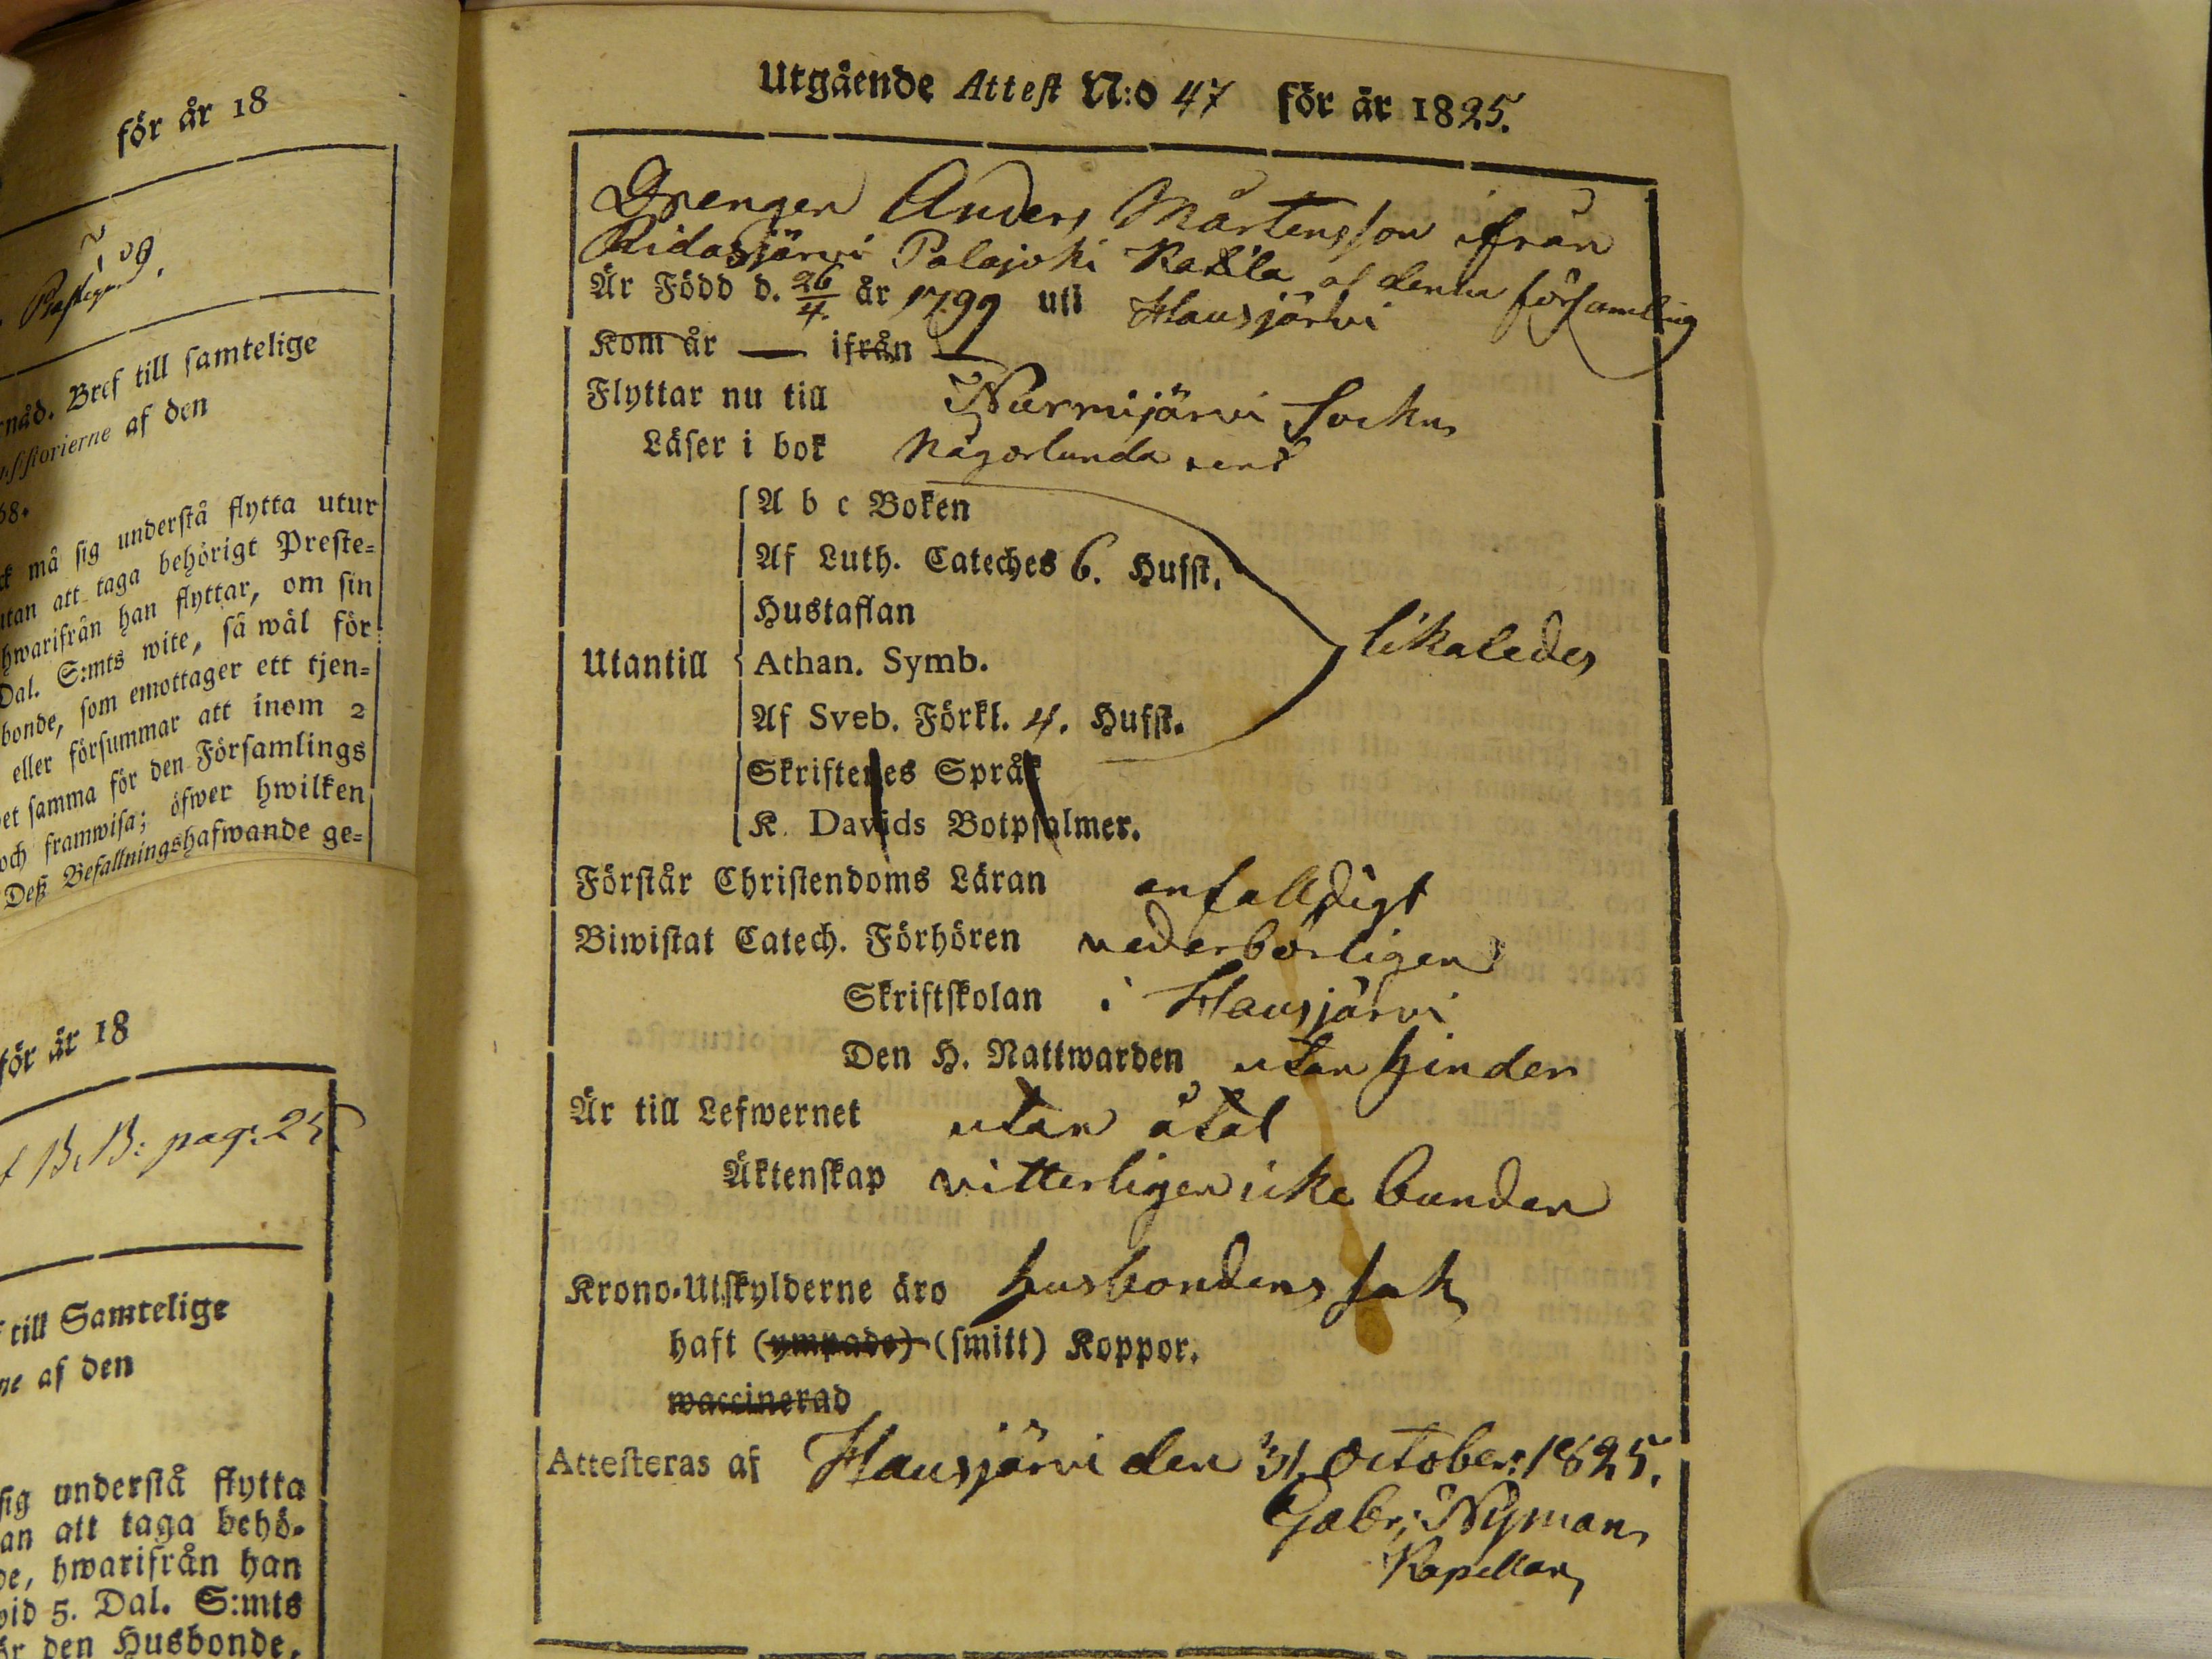 för år 18
. Bref till samtelige
storierne af den
68.
må sig understå flytta utur
utan att taga behörigt Preste=
hwarifrån han flyttar, om sin
Dal. S:mts wite, så wäl för
bonde, som emottager ett tjen=
eller försummar att inom 2
et samma för den Församlings
och framwisa; öfwer hwilken
Deß Befallningshafwande ge=
för år 18
B. B: pag: 25
till Samtelige
ne af den
sig understå flytta
an att taga behö=
de, hwarifrån han
vid 5. Dal. S:mts
ör den Husbonde,
Utgående Attest N:o 47 för år 1825.
Drengen Anders Mårtensson ifrån
Ridasjärvi Palajoki Kaxila af denna församling
Är Född d. 26/4. år 1799 uti Hausjärvi
Kom år — ifrån —
Flyttar nu till Nurmijärvi Sockn
Läser i bok någorlunda rent
A b c Boken
Af Luth. Cateches 6. Hufst.
Hustaflan
Utantill Athan. Symb. likaledes
Af Sveb. Förkl. 4. Hufst.
Skriftenes Språk
K. Davids Botpsalmer.
Förstår Christendoms Läran enfalldigt
Biwistat Catech. Förhören vederbörligen
Skriftskolan i Hausjärvi
Den H. Nattwarden utan hinder
Är till Lefwernet utan åtal
Äktenskap vitterligen icke bunden
Krono-Utskylderne äro husbondens sak
haft (ympade) (smitt) Koppor.
waccinerad
Attesteras af Hausjärvi den 31 October: 1825.
Gabr: Nyman
Kapellan